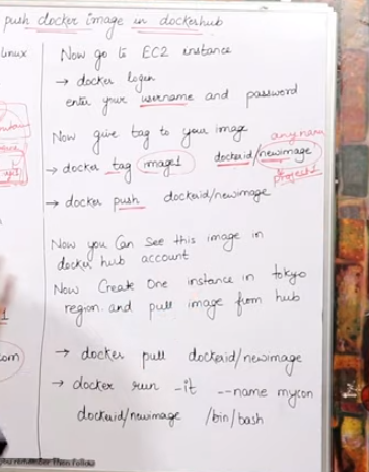 push docker image in dockerhub
Linux
Now go to EC2 instance
→ docker login
enter your username and password
Now give tag to your image
any name
→ docker tag image1 dockerid/newimage
project1
→ docker push dockerid/newimage
Now you Can see this image in
docker hub account
Now Create One instance in tokyo
region. and pull image from hub
→ docker pull dockerid/newimage
→ docker run -it --name mycon
dockerid/newimage /bin/bash